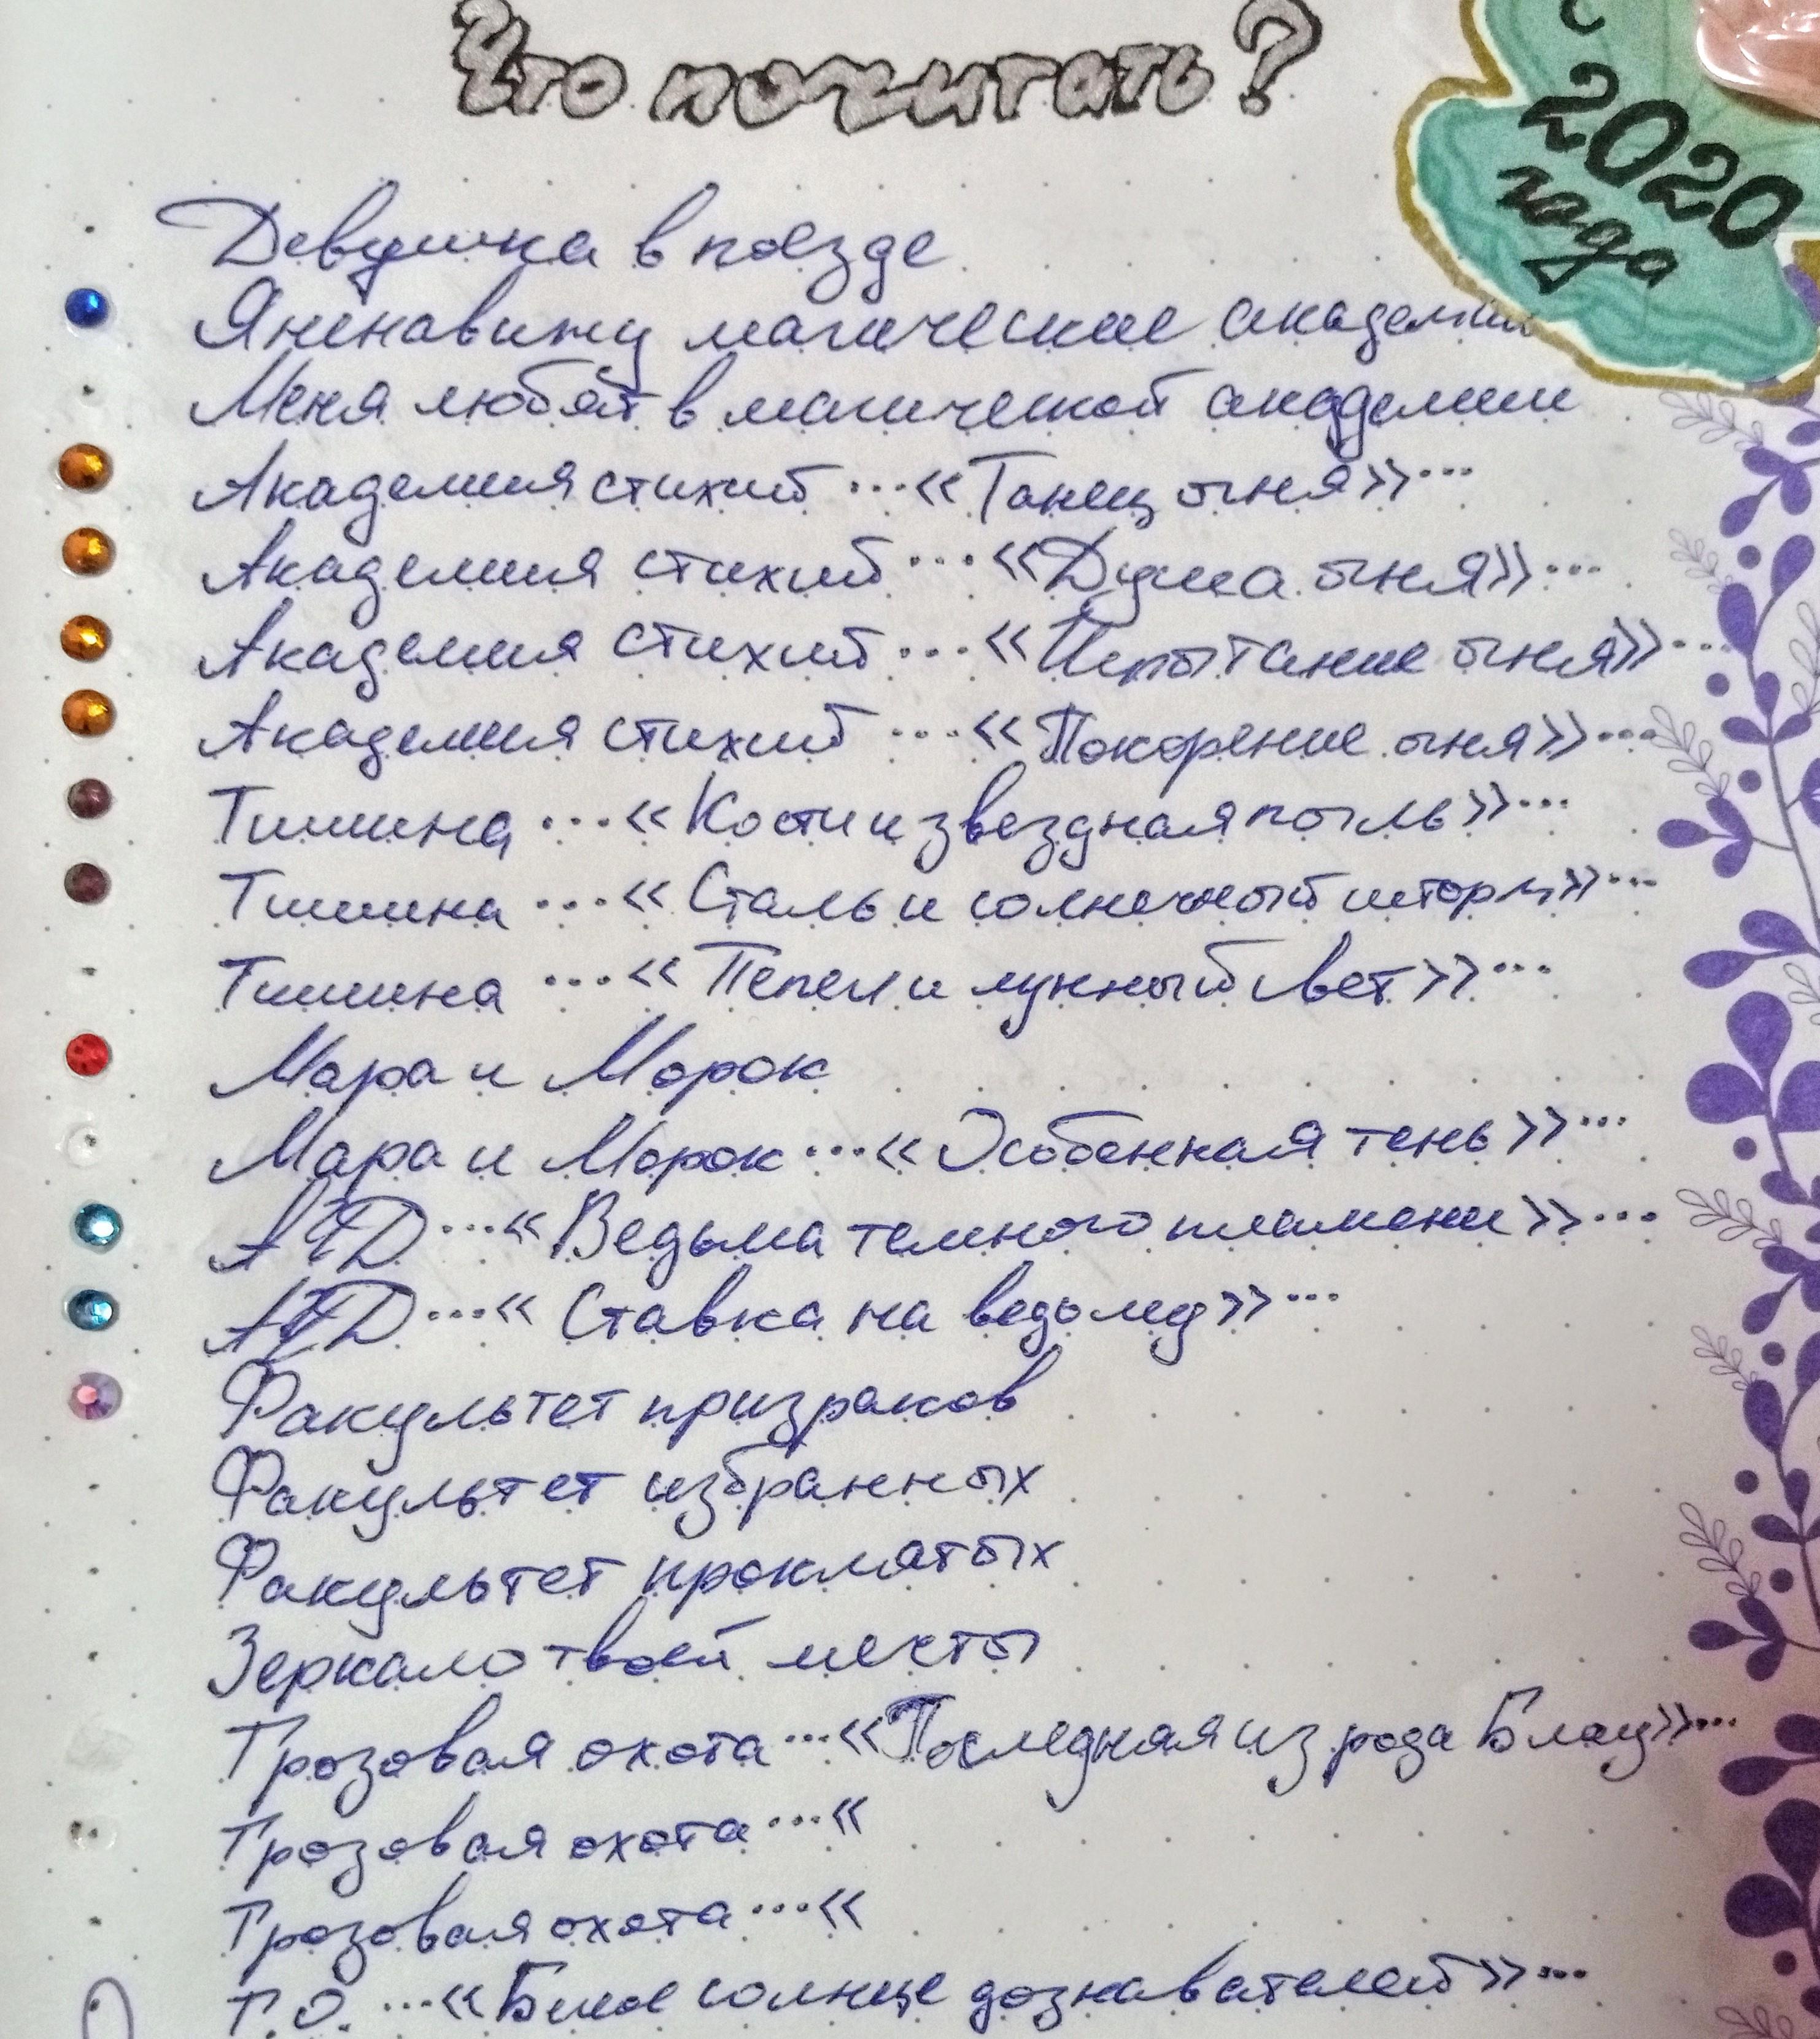 Что почитать?
2020
года
Девушка в поезде
Я ненавижу магические академии
Меня любят в магической академии
Академия стихий ... «Танец огня» ...
Академия стихий ... «Душа огня» ...
Академия стихий ... «Испытание огня» ...
Академия стихий ... «Покорение огня» ...
Тишина ... «Кости и звездная пыль» ...
Тишина ... «Сталь и солнечный шторм» ...
Тишина ... «Пепел и лунный свет» ...
Мара и Морок
Мара и Морок ... «Особенная тень» ...
АЧД ... «Ведьма темного пламени» ...
АЧД ... «Ставка на ведьму» ...
Факультет призраков
Факультет избранных
Факультет проклятых
Зеркало твоей мечты
Грозовая охота ... «Последняя из рода Блау» ...
Грозовая охота ... «
Грозовая охота ... «
Г.О. ... «Белое солнце дознавателей» ...